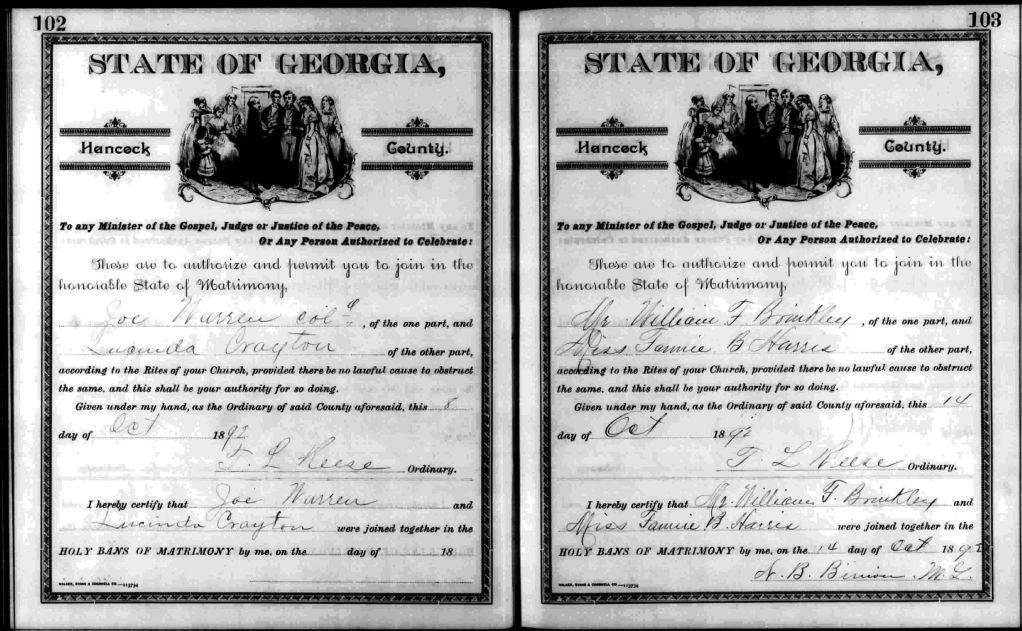 102
STATE OF GEORGIA,
Hancock County.
To any Minister of the Gospel, Judge or Justice of the Peace,
Or Any Person Authorized to Celebrate:
These are to authorize and permit you to join in the
honorable State of Matrimony,
Joe Warren col d, of the one part, and
Lucinda Crayton of the other part,
according to the Rites of your Church, provided there be no lawful cause to obstruct
the same, and this shall be your authority for so doing.
Given under my hand, as the Ordinary of said County aforesaid, this 8
day of Oct 1892
T. L Reese Ordinary.
I hereby certify that Joe Warren and
Lucinda Crayton were joined together in the
HOLY BANS OF MATRIMONY by me, on the day of 18
WALKER, EVANS & COGSWELL CO.—113734
103
STATE OF GEORGIA,
Hancock County.
To any Minister of the Gospel, Judge or Justice of the Peace,
Or Any Person Authorized to Celebrate:
These are to authorize and permit you to join in the
honorable State of Matrimony,
Mr William F Brinkley, of the one part, and
Miss Fannie B Harris of the other part,
according to the Rites of your Church, provided there be no lawful cause to obstruct
the same, and this shall be your authority for so doing.
Given under my hand, as the Ordinary of said County aforesaid, this 14
day of Oct 1892
T L Reese Ordinary.
I hereby certify that Mr. William F. Brinkley and
Miss Fannie B. Harris were joined together in the
HOLY BANS OF MATRIMONY by me, on the 14 day of Oct 1892
B. Binion, M. G.
WALKER, EVANS & COGSWELL CO.—113734